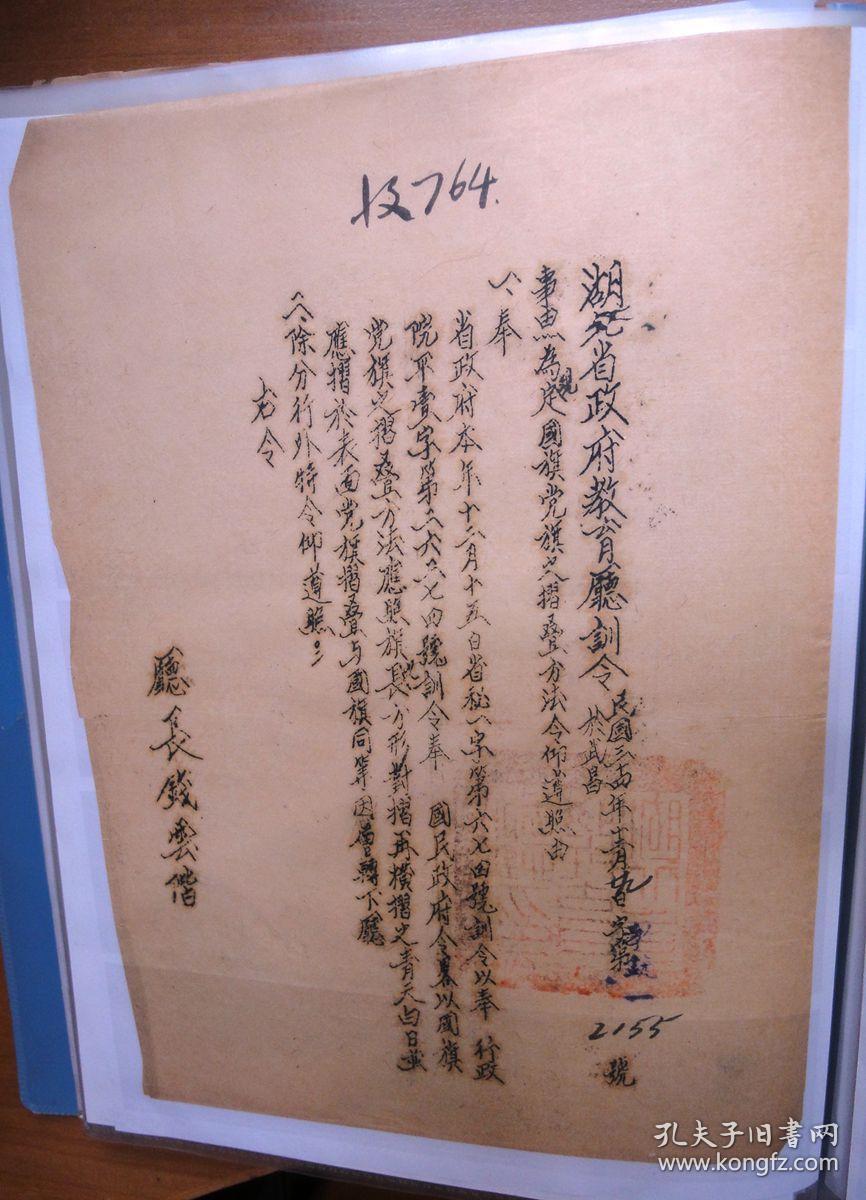 收764.
湖北省政府教育廳訓令 民國三十四年十二月廿九日 字第 2155 號
於武昌
事由為規定國旗党旗之摺疊方法令仰遵照由
一、奉
省政府本年十二月十五日省秘一字第六七四號訓令以奉 行政
院平壹字第二六六七四號訓令奉 國民政府令畧以國旗
党旗之摺疊方法應照旗長方形對摺再橫摺之青天白日並
應摺於表面党旗摺疊与國旗同等因層轉下廳
二、除分行外特令仰遵照。
右令
廳長錢雲階
孔夫子旧书网
www.kongfz.com